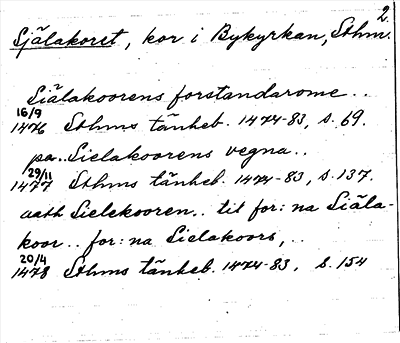 2.
Själakoret, kor i Bykyrkan, Sthm.
Siälakoorens forstandarome..
16/9
1476 Sthms tänkeb. 1474-83, s. 69.
pa.. Sielakoorens vegna..
29/11
1477 Sthms tänkeb. 1474-83, s. 137.
aath Sielekooren.. til for:na Siäla-
koor.. for:na Sielakoors,..
20/4
1478 Sthms tänkeb. 1474-83, s. 154